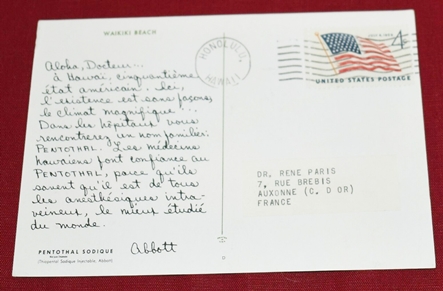 WAIKIKI BEACH
Aloha, Docteur...
à Hawaï, cinquantième
état américain. Ici,
l'existence est sans façons,
le climat magnifique...
Dans les hôpitaux vous
rencontrerez un nom familier:
PENTOTHAL. Les médecins
hawaïens font confiance au
PENTOTHAL, parce qu'ils
savent qu'il est de tous
les anesthésiques intra-
veineux, le mieux étudié
du monde.
Abbott
PENTOTHAL SODIQUE
(Thiopental Sodique injectable, Abbott)
HONOLULU,
HAWAII
4¢
UNITED STATES POSTAGE
DR. RENE PARIS
7, RUE BREBIS
AUXONNE (C. D OR)
FRANCE